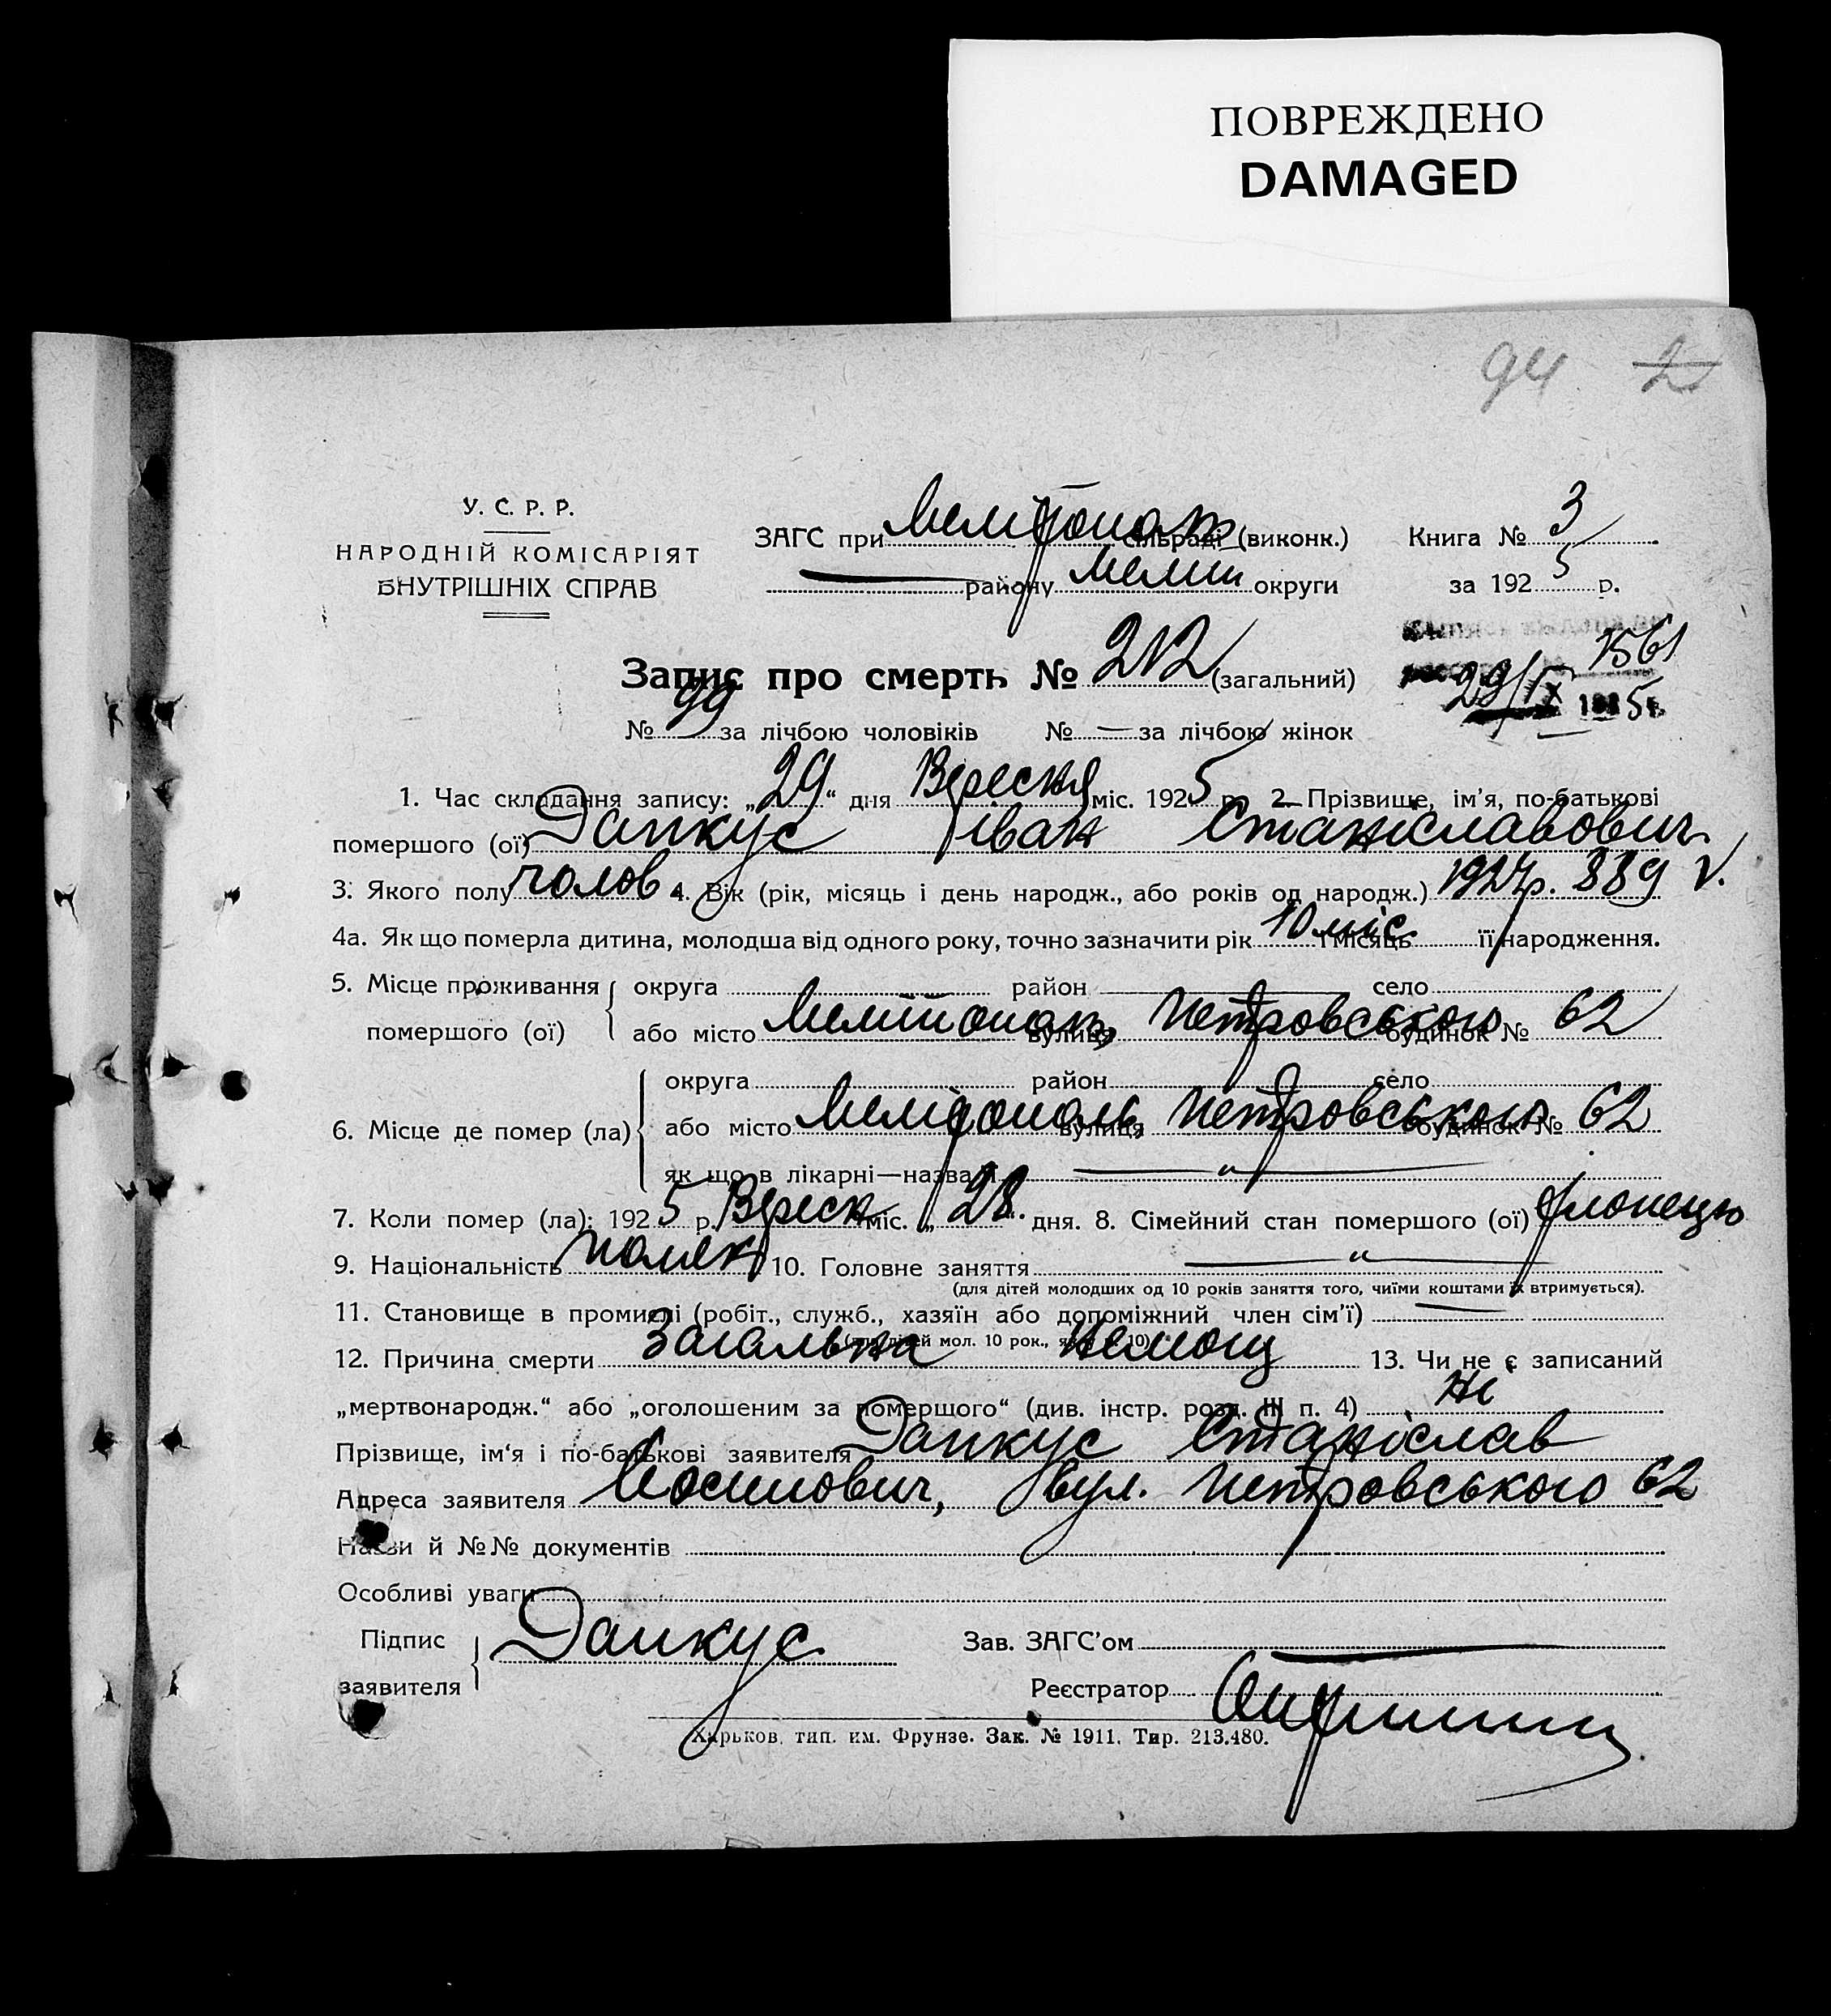 ПОВРЕЖДЕНО
DAMAGED
94 2
У. С. Р. Р.
НАРОДНІЙ КОМІСАРІЯТ
ВНУТРІШНІХ СПРАВ
ЗАГС при Мелітопол сільраді (виконк.)
району Меліт округи
Книга № 3
за 1925 р.
Запис про смерть № 212 (загальний)
1561
29/IX 1925 г.
№ 99 за лічбою чоловіків № — за лічбою жінок
1. Час складання запису: „29“ дня Вересня міс. 1925 р. 2. Прізвище, ім’я, по-батькові
помершого (ої) Дапкус Іван Станіславович
3. Якого полу чолов. 4. Вік (рік, місяць і день народж., або років од народж.) 1924 р.
4а. Як що померла дитина, молодша від одного року, точно зазначити рік 10 міс. і місяць її народження.
5. Місце проживання помершого (ої) округа район село
або місто Мелітопол, вулиця Петровського будинок № 62
6. Місце де помер (ла) округа район село
або місто Мелітополь, вулиця Петровського будинок № 62
як що в лікарні—назва її — „ —
7. Коли помер (ла): 1925 р. Вересн міс. „28“ дня. 8. Сімейний стан помершого (ої) хлопець
9. Національність поляк 10. Головне заняття — „ —
(для дітей молодших од 10 років заняття того, чиїми коштами їх втримується).
11. Становище в промислі (робіт., служб., хазяїн або допоміжний член сім’ї) —
(для дітей мол. 10 рок., як в п. 10)
12. Причина смерти Загальна немощ 13. Чи не є записаний
„мертвонародж.“ або „оголошеним за помершого“ (див. інстр. розд. III п. 4) Ні
Прізвище, ім‘я і по-батькові заявителя Дапкус Станіслав
Адреса заявителя Йосипович, вул. Петровського 62
Назви й №№ документів
Особливі уваги
Підпис заявителя Дапкус
Зав. ЗАГС’ом —
Реєстратор
Харьков, тип. им. Фрунзе. Зак. № 1911. Тир. 213.480.